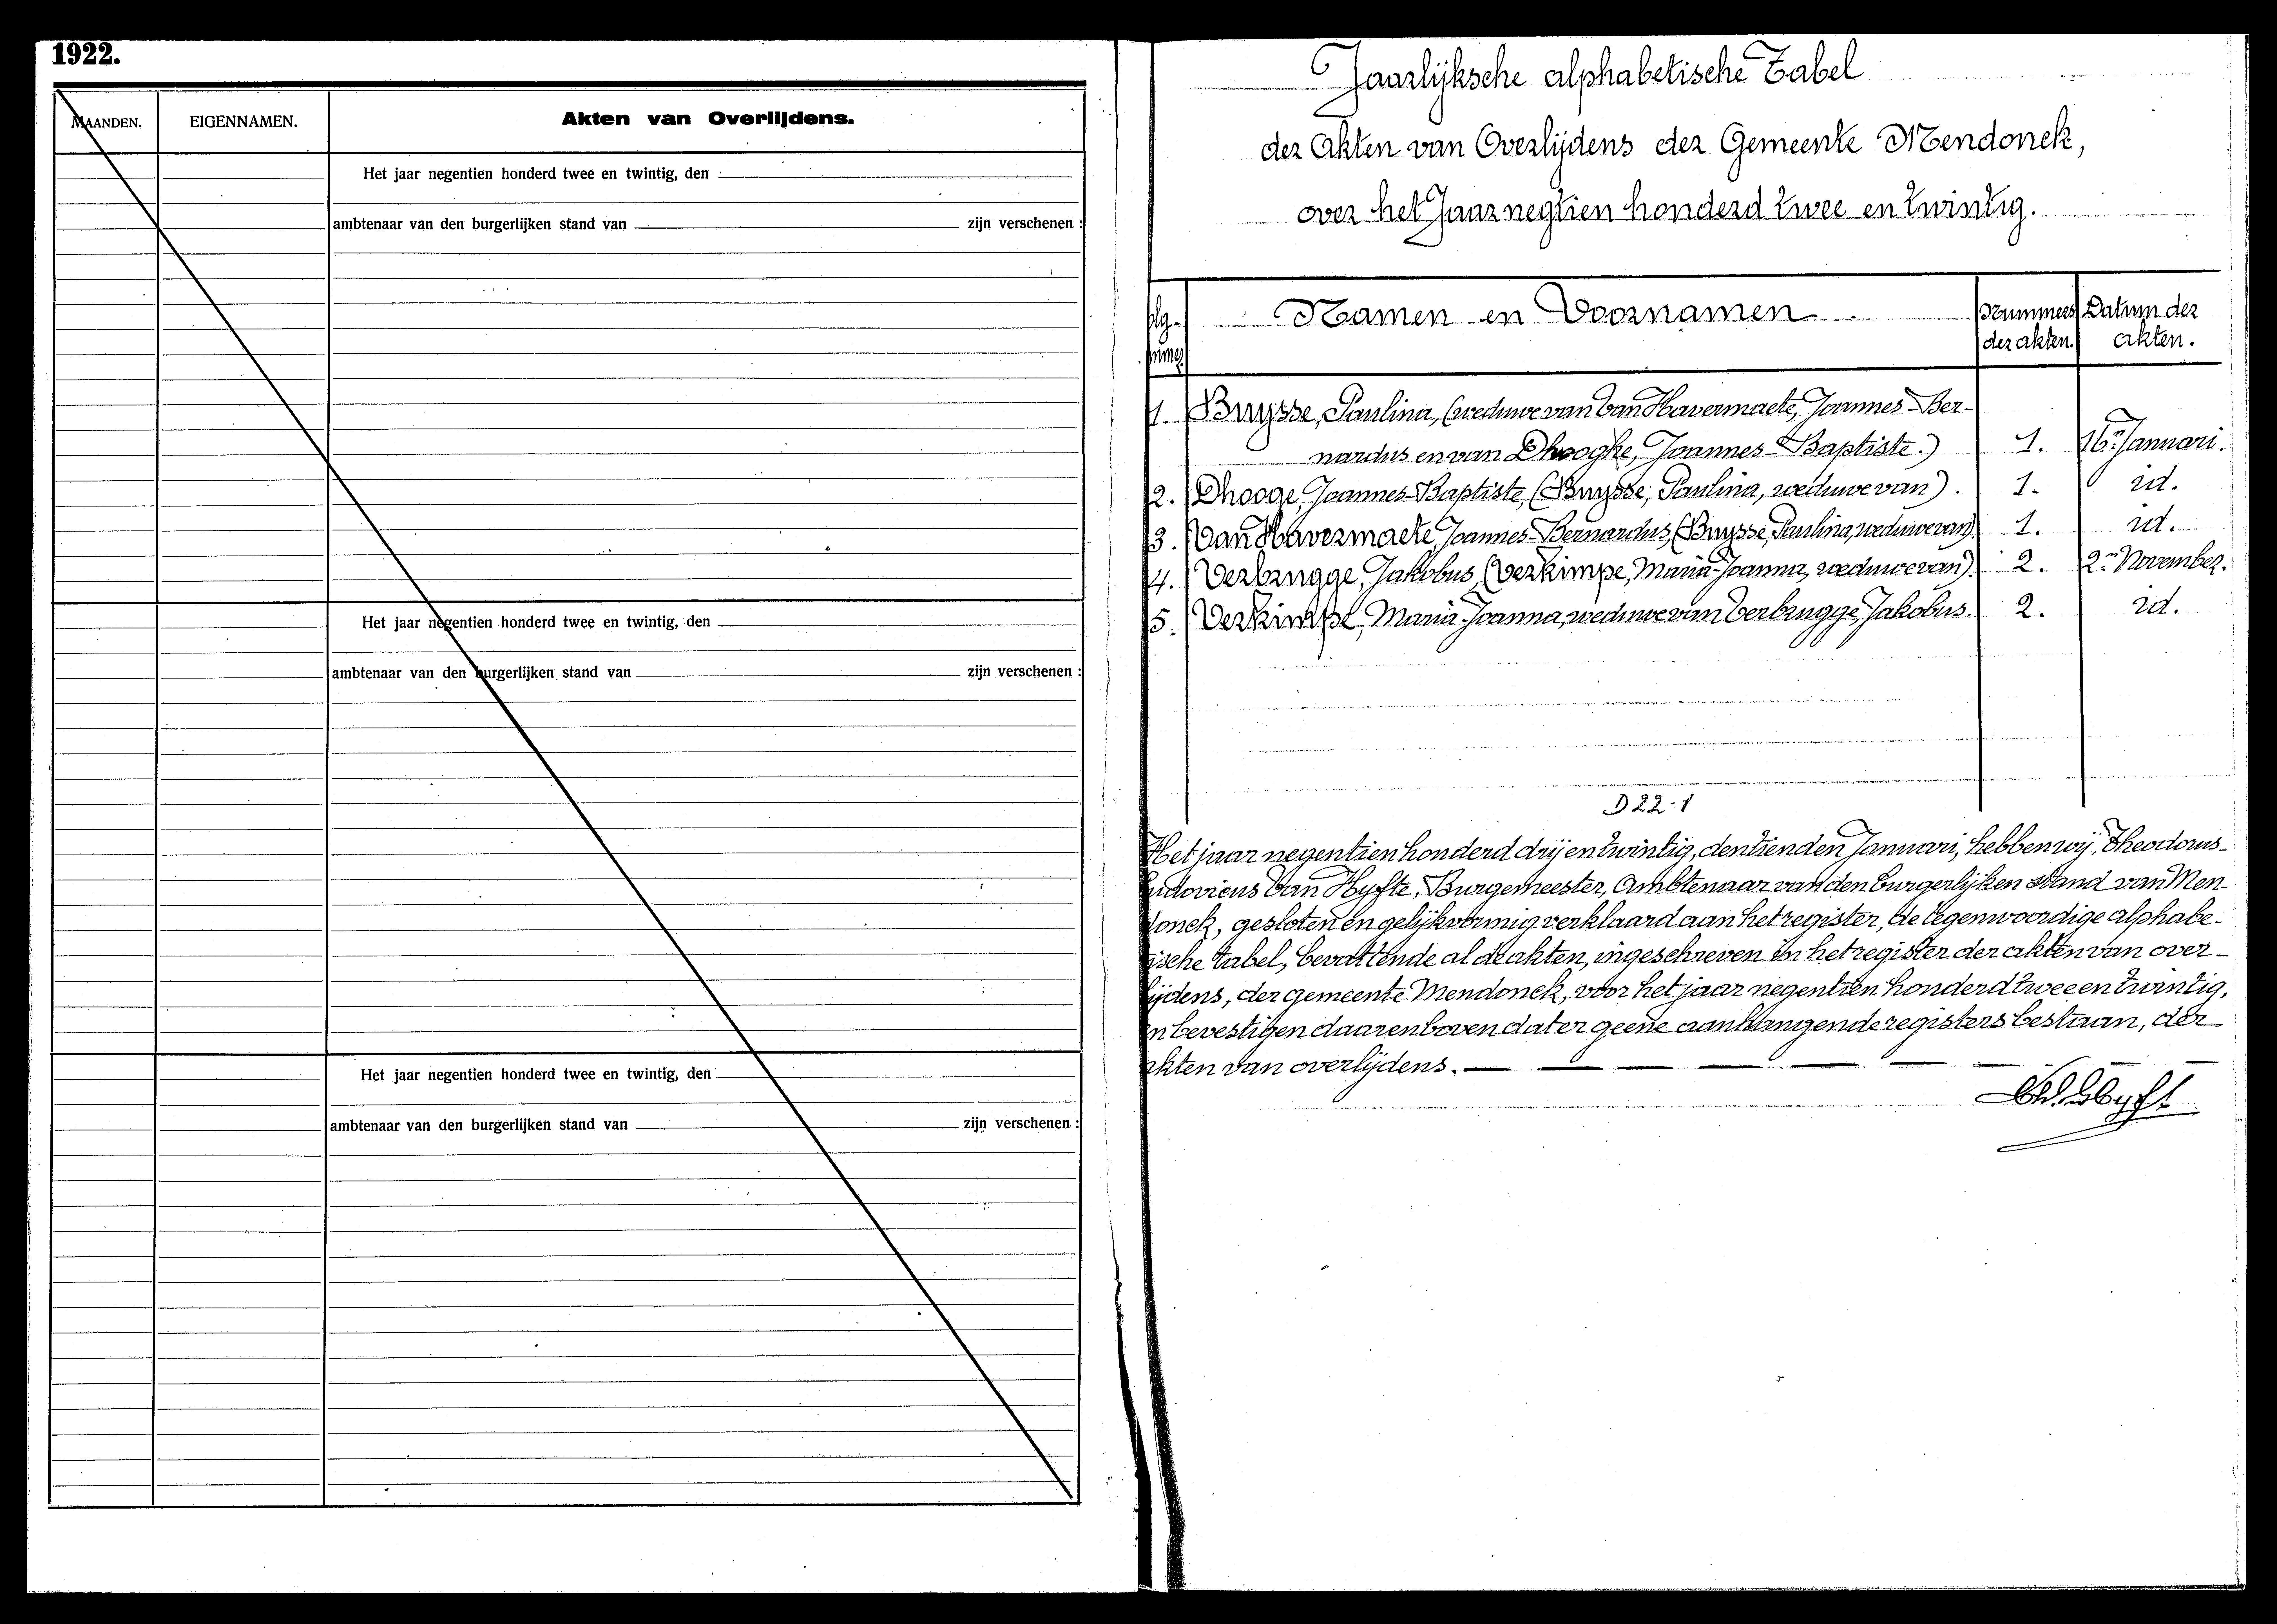 1922.
MAANDEN.
EIGENNAMEN.
Akten van Overlijdens.
Het jaar negentien honderd twee en twintig, den
ambtenaar van den burgerlijken stand van zijn verschenen :
Het jaar negentien honderd twee en twintig, den
ambtenaar van den burgerlijken stand van zijn verschenen :
Het jaar negentien honderd twee en twintig, den
ambtenaar van den burgerlijken stand van zijn verschenen :
Jaarlijksche alphabetische Tabel
der Akten van Overlijdens der Gemeente Mendonck,
over het Jaar negtien honderd twee en twintig.
Namen en Voornamen
Nummers der akten.
Datum der akten.
1. Bruysse, Paulina, (weduwe van Van Havermaete, Joannes Ber-
nardus en van Dhooghe, Joannes-Baptiste.) 1. 16n Januari.
2. Dhooge, Joannes-Baptiste, (Bruysse, Paulina, weduwe van). 1. id.
3. Van Havermaete, Joannes-Bernardus, (Bruysse, Paulina, weduwe van) 1. id.
4. Verbrugge, Jakobus, (Verkimpe, Maria-Joanna, weduwe van). 2. 2n November.
5. Verkimpe, Maria-Joanna, weduwe van Verbrugge, Jakobus. 2. id.
D 22-1
Het jaar negentien honderd drij en twintig, den tienden Januari, hebben wij, Theodorus-
udovicus Van Hyfte, Burgemeester, Ambtenaar van den burgerlijken stand van Men-
donck, gesloten en gelijkvormig verklaard aan het register, de tegenwoordige alphabe-
tische tabel, bevattende al de akten, ingeschreven in het register der akten van over-
lijdens, der gemeente Mendonck, voor het jaar negentien honderd twee en twintig,
en bevestigen daarenboven dat er geene aanhangende registers bestaan, der
akten van overlijdens.